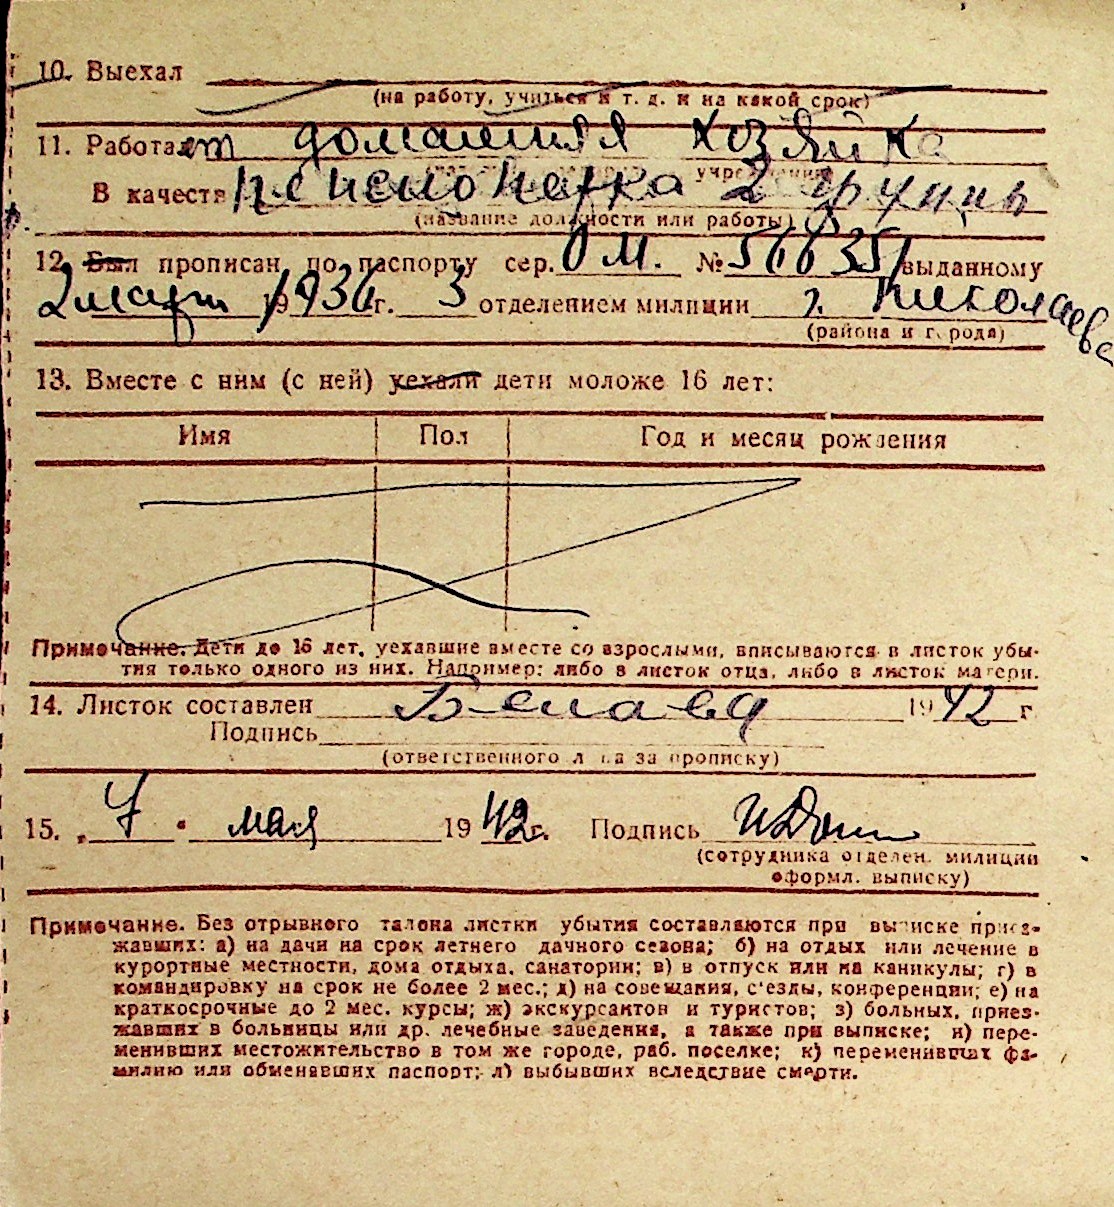 10. Выехал
(на работу, учиться и т. д. и на какой срок)
11. Работает домашняя хозяйка
учреждения
В качестве пенсионерка 2 группы
(название должности или работы)
12. Был прописан по паспорту сер. ОМ. № 566351 выданному
2 март 1936 г. 3 отделением милиции г. Николаева
(района и города)
13. Вместе с ним (с ней) уехали дети моложе 16 лет:
Имя Пол Год и месяц рождения
Примечание. Дети до 16 лет, уехавшие вместе со взрослыми, вписываются в листок убы-
тия только одного из них. Например: либо в листок отца, либо в листок матери.
14. Листок составлен Белаева 1942 г
Подпись
(ответственного лица за прописку)
15. „7" мая 1942 г. Подпись
(сотрудника отделен. милиции
оформл. выписку)
Примечание. Без отрывного талона листки убытия составляются при выписке приез-
жавших: а) на дачи на срок летнего дачного сезона; б) на отдых или лечение в
курортные местности, дома отдыха, санатории; в) в отпуск или на каникулы; г) в
командировку на срок не более 2 мес.; д) на совещания, с'езды, конференции; е) на
краткосрочные до 2 мес. курсы; ж) экскурсантов и туристов; з) больных, приез-
жавших в больницы или др. лечебные заведения, а также при выписке; и) пере-
менивших местожительство в том же городе, раб. поселке; к) переменивших фа-
милию или обменявших паспорт; л) выбывших вследствие смерти.